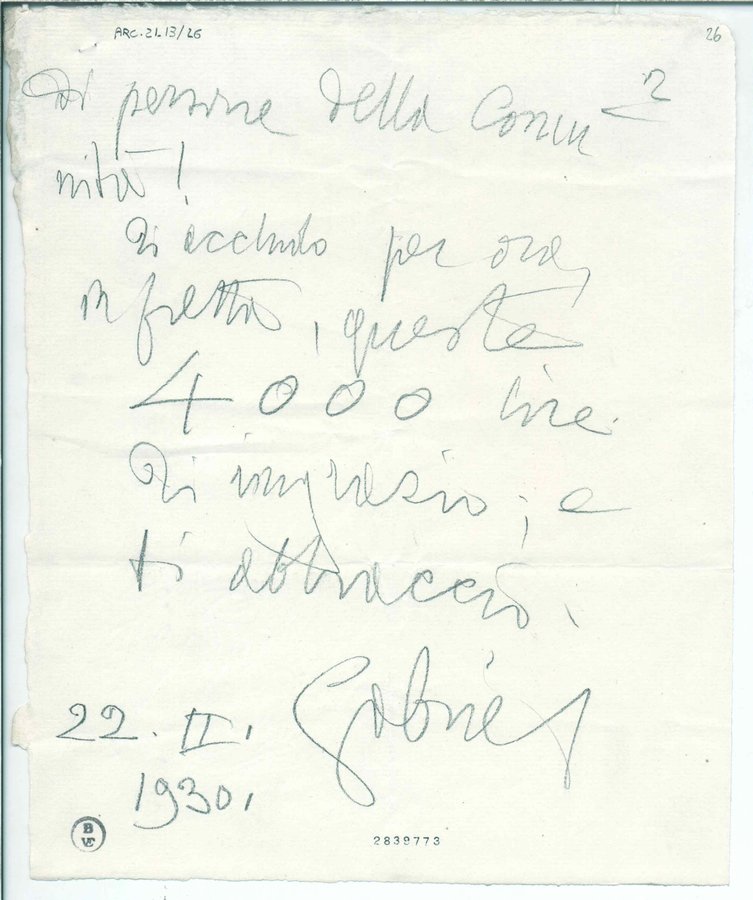 ARC.21.13/26
26
2
di persone della Comu
nità!
Ti accludo per ora,
in fretta, queste
4000 lire.
Ti ringrazio; e
ti abbraccio.
Gabriel
22. II.
1930.
B
VE
2839773